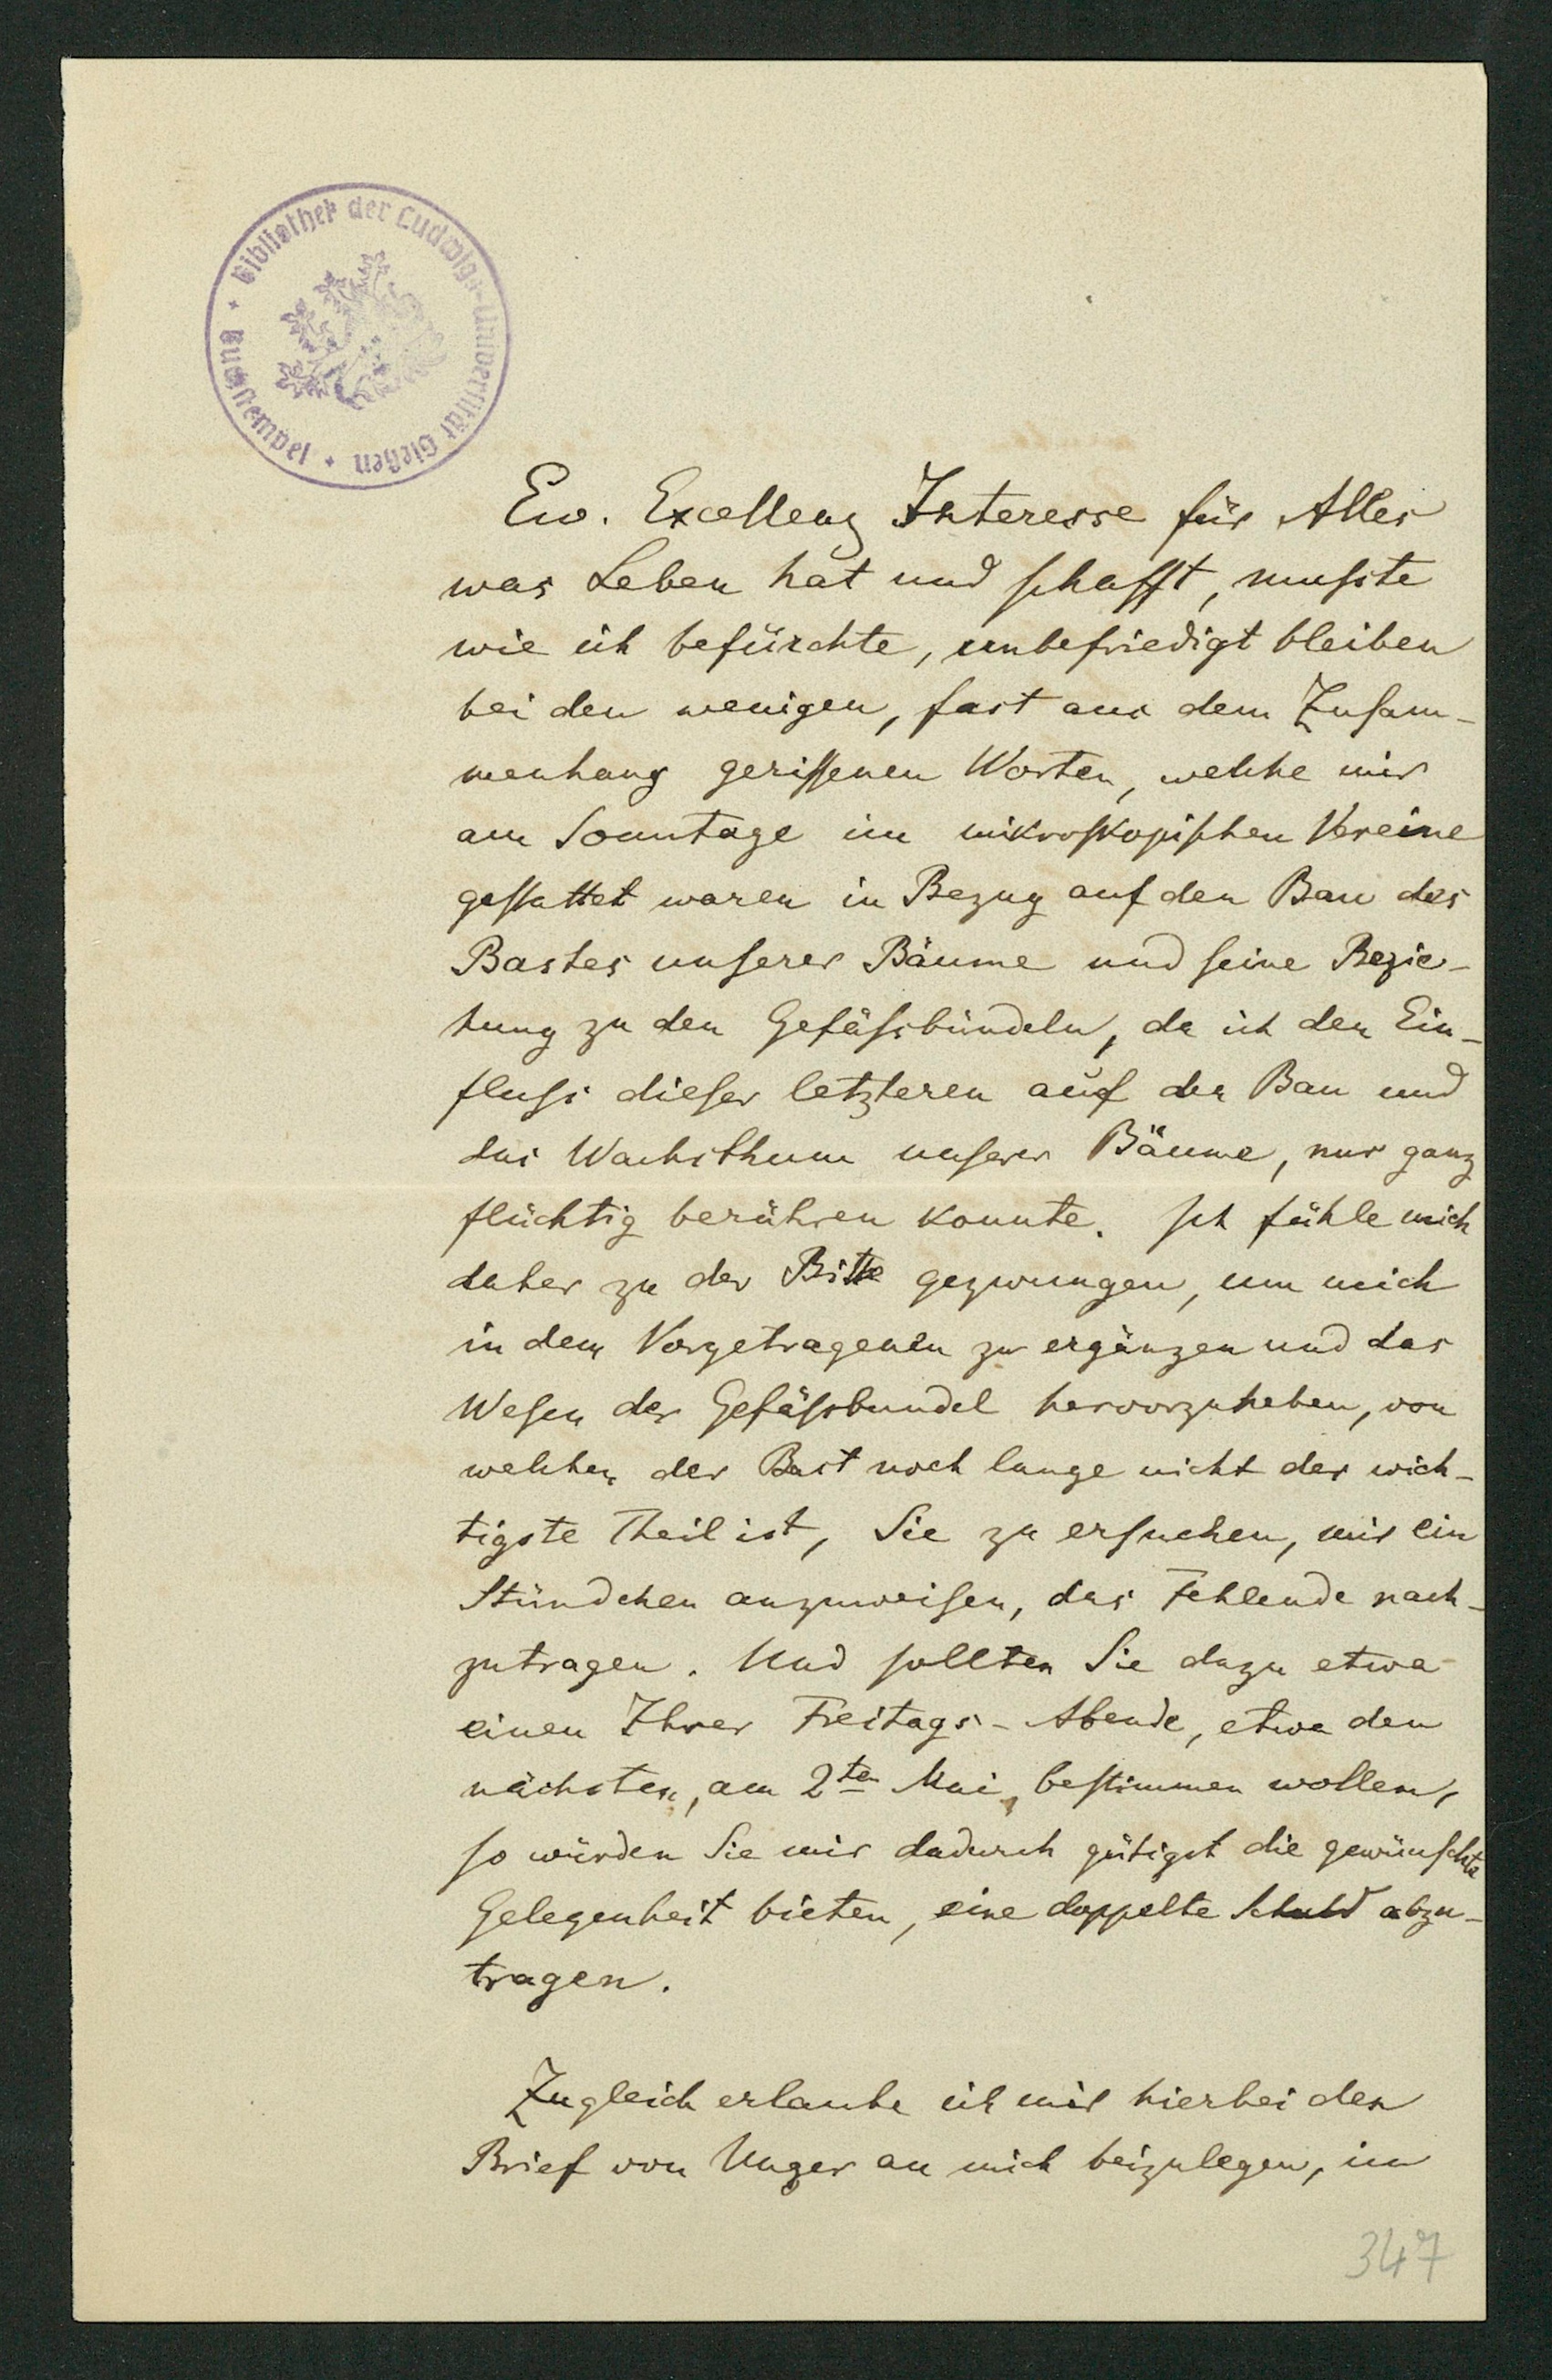 Bibliothek der Ludwigs-Universität Gießen + Buchstempel +
Ew. Excellenz Interesse für Alles
was Leben hat und schafft, musste
wie ich befürchte, unbefriedigt bleiben
bei den wenigen, fast aus dem Zusam-
menhang gerissenen Worten, welche mir
am Sonntage im mikroskopischen Vereine
gestattet waren in Bezug auf den Bau des
Bastes unserer Bäume und seine Bezie-
hung zu den Gefässbündeln, da ich den Ein-
fluss dieser letzteren auf den Bau und
das Wachsthum unserer Bäume, nur ganz
flüchtig berühren konnte. Ich fühle mich
daher zu der Bitte gezwungen, um mich
in dem Vorgetragenen zu ergänzen und das
Wesen der Gefässbundel hervorzuheben, von
welchen der Bast noch lange nicht der wich-
tigste Theil ist, Sie zu ersuchen, mir ein
Stündchen anzuweisen, das Fehlende nach-
zutragen. Und sollten Sie dazu etwa
einen Ihrer Freitags-Abende, etwa den
nächsten, am 2ten Mai, bestimmen wollen,
so würden Sie mir dadurch gütigst die gewünschte
Gelegenheit bieten, eine doppelte Schuld abzu-
tragen.
Zugleich erlaube ich mir hierbei den
Brief von Unger an mich beizulegen, im
347